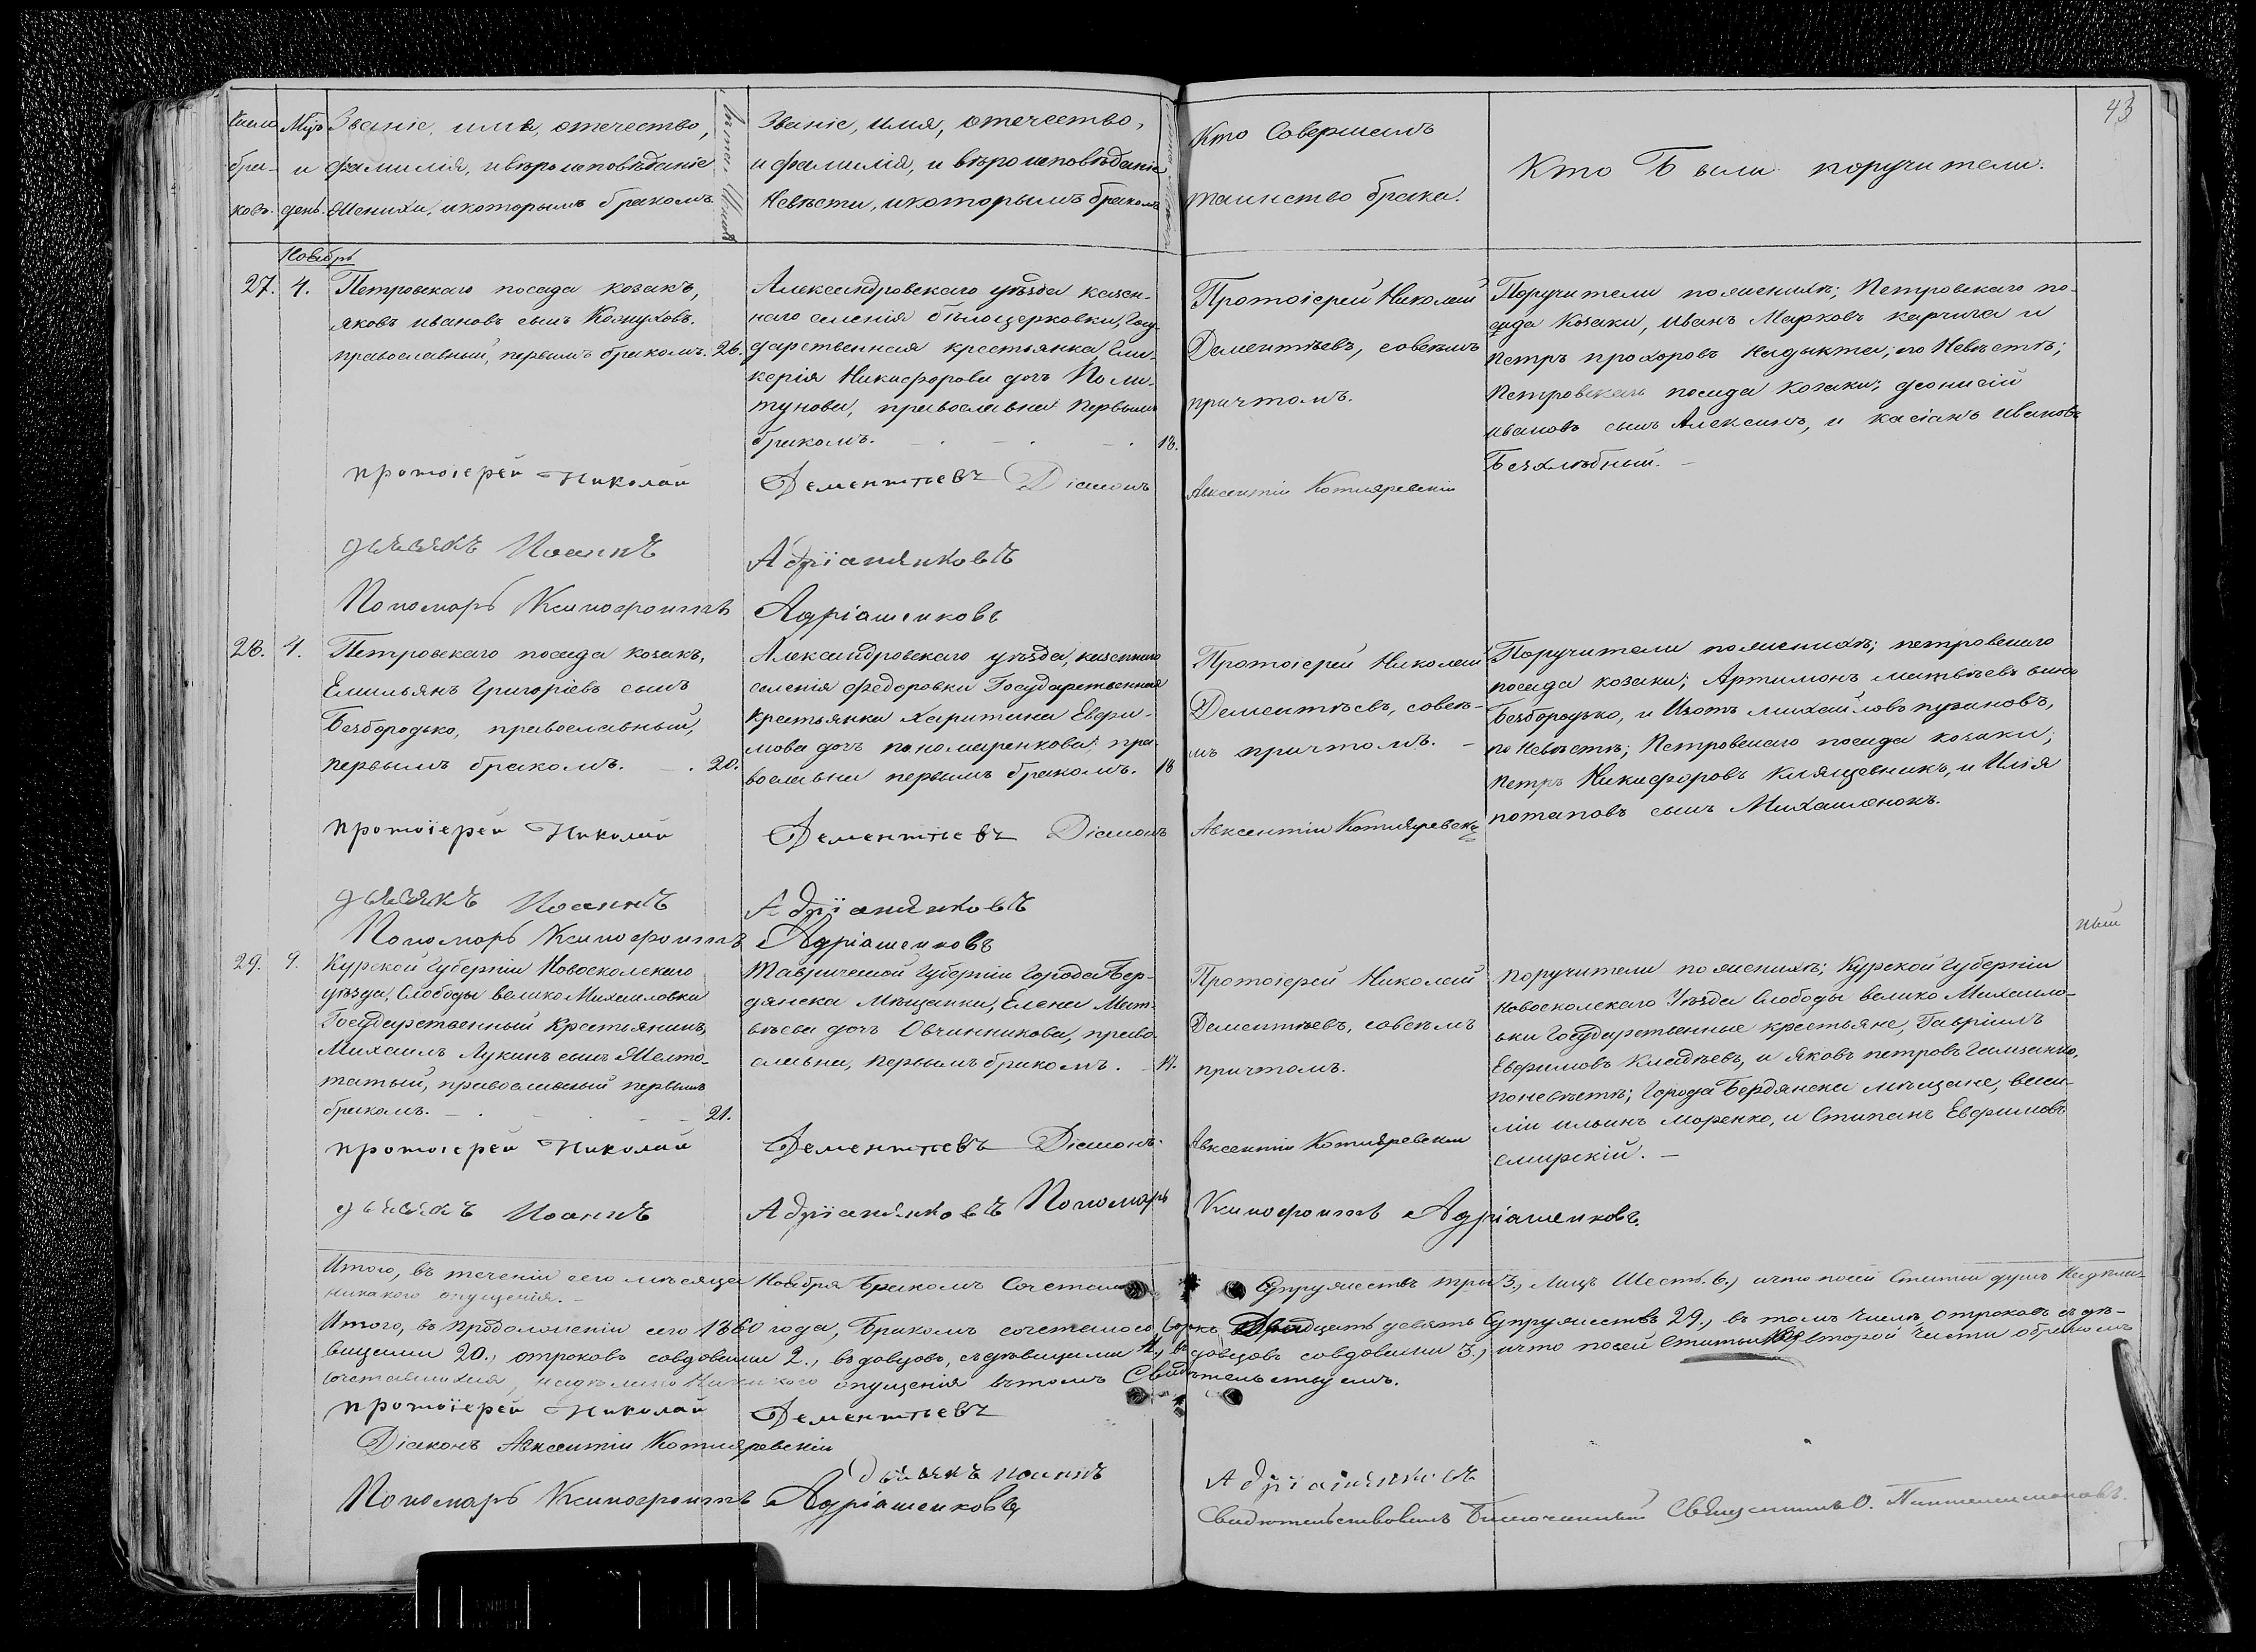 43
Число Мцъ Званіе, имя, отечество,
бра- и фамилія, и вѣроисповѣданіе
ковъ. день. Жениха, и которымъ бракомъ.
Лѣта Жениха
Званіе, имя, отечество,
и фамилія, и вѣроисповѣданіе
Невѣсты, и которымъ бракомъ
Кто Совершалъ
таинство брака.
Кто Были поручители.
Ноябрь
27. 4. Петровскаго посада козакъ,
яковъ ивановъ сынъ Кожуховъ.
православный, первымъ бракомъ. 26.
Александровскаго уѣзда казен-
наго селенія бѣлоцерковки, Госу-
дарственная крестьянка, Гли-
керія Никифорова дочь Поли-
тунова, православна первымъ
бракомъ. 18.
Протоіерей Николай
Дементьевъ, совсѣмъ
причтомъ.
Поручители пожениху; Петровскаго по-
сада Козаки, Иванъ Марковъ карчига и
петръ прохоровъ Надыкта; по Невѣстѣ;
Петровскаго посада козаки; деонисій
ивановъ сынъ Алексинъ, и касіанъ Ивановъ
Безхлѣбный.
протоіерей Николай Дементіевъ Діаконъ Авксентій Котляревскій
дьячекъ Иоаннъ Адріаненковъ
Пономарь Ксинофонтъ Адріаненковъ
28. 4. Петровскаго посада козакъ,
Емильянъ Григоріевъ сынъ
Безбородько, православный,
первымъ бракомъ. 20.
Александровскаго уѣзда, казеннаго
селенія Федоровки Государственная
крестьянка Харитина Евфи-
мова дочь пономаренкова: пра-
вославна первымъ бракомъ. 18
Протоіерей Николай
Дементьевъ, совсѣ-
мъ причтомъ.
Поручители пожениху; петровскаго
посада козаки; Артимонъ матвѣевъ сынъ
Безбородько, и Изотъ михайловъ пузановъ,
по Невѣстѣ; Петровскаго посада козаки;
петръ Никифоровъ Клящевникъ, и Илія
потаповъ сынъ Михаиленокъ.
протоіерей Николай Дементіевъ Діаконъ Авксентій Котляревскій
дьячекъ Иоаннъ Адріаненковъ
Пономарь Ксинофонтъ Адріаненковъ
ный
29. 9. Курской Губерніи Новоскольскаго
уѣзда, Слободы велико Михаиловки
Государственный Крестьянинъ,
Михаилъ Лукинъ сынъ Желто-
татый, православный первымъ
бракомъ. 21.
Таврической Губерніи Города Бер-
дянска Мѣщанка, Елена Мат-
вѣева дочь Овчинникова, право-
славна, первымъ бракомъ. 17.
Протоіерей Николай
Дементьевъ, совсѣмъ
причтомъ.
поручители пожениху; Курской Губерніи
Новоскольскаго Уѣзда Слободы велико Михаило-
вки Государственные крестьяне, Гавріилъ
Евфимовъ Кладѣевъ, и Яковъ петровъ
поневѣстѣ; Города Бердянска мѣщане, васи-
лій ильинъ Моренко, и Стипанъ Евфимовъ
смирскій.
протоіерей Николай Дементіевъ Діаконъ Авксентій Котляревскій
дьячекъ Иоаннъ Адріаненковъ Пономарь Ксинофонтъ Адріаненковъ.
Итого, въ теченіи сего мѣсяца Ноября Бракомъ Сочеталось Супружествъ три 3, Лицъ Шесть 6., и что посей Статьи душъ
никакого опущенія.
Итого, въ продолженіи сего 1860 года, Бракомъ сочеталось Двадцать девять Супружествъ 29., въ томъ числѣ отроковъ съ дѣ-
вицами 20., отроковъ совдовами 2., вдовцовъ, съ дѣвицами 4, вдовцовъ совдовами 3., и что посей Статьи второй части обракомъ
сочетавшихся, никакого опущенія вътомъ Свидѣтельствуемъ.
протоіерей Николай Дементіевъ
Діаконъ Авксентій Котляревскій
дьячекъ иоаннъ Адріаненковъ
Пономарь Ксинофонтъ Адріаненковъ
Свидѣтельствовалъ Благочинный Священникъ О. Пантелеимоновъ.